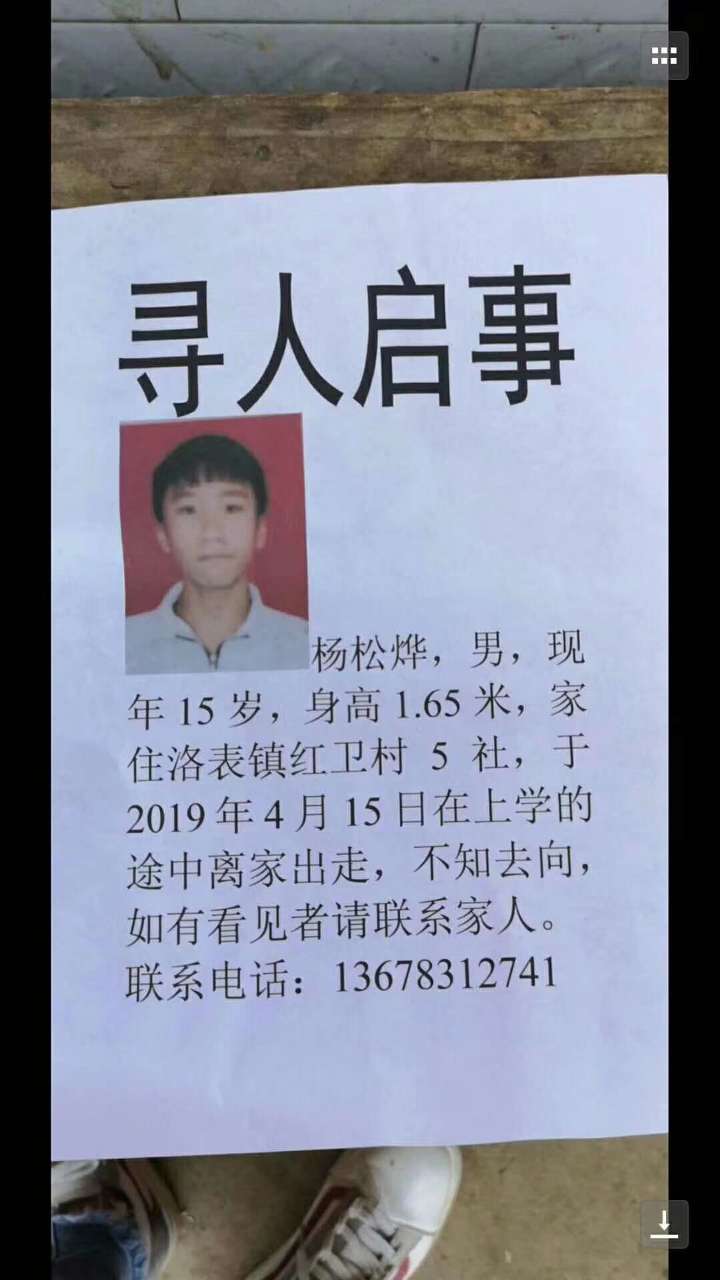 寻人启事
杨松烨，男，现
年 15 岁，身高 1.65 米，家
住洛表镇红卫村 5 社，于
2019 年 4 月 15 日在上学的
途中离家出走，不知去向，
如有看见者请联系家人。
联系电话：13678312741